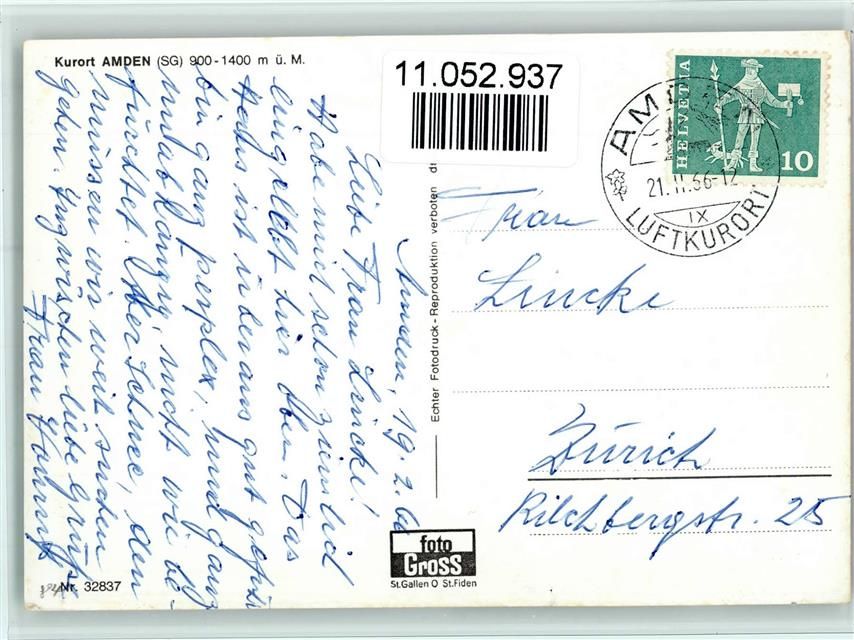 Kurort AMDEN (SG) 900-1400 m ü. M.
11.052.937
HELVETIA
10
AMDEN
21.II.66-12
IX
LUFTKURORT
Amden, 19.2.66
Liebe Frau Lincke!
Habe mich schon ziemlich
eingelebt hier oben. Das
Haus ist überaus gut geführt
bin ganz perplex, und ganz
unabhängig, nicht wie be-
fürchtet. Aber Schnee, den
müssen wir weit suchen
gehen. Inzwischen liebe Grüsse
Frau
Frau
Lincke
Zürich
Kilchbergstr. 25
Echter Fotodruck - Reproduktion verboten
foto
Gross
St.Gallen O St.Fiden
Nr. 32837